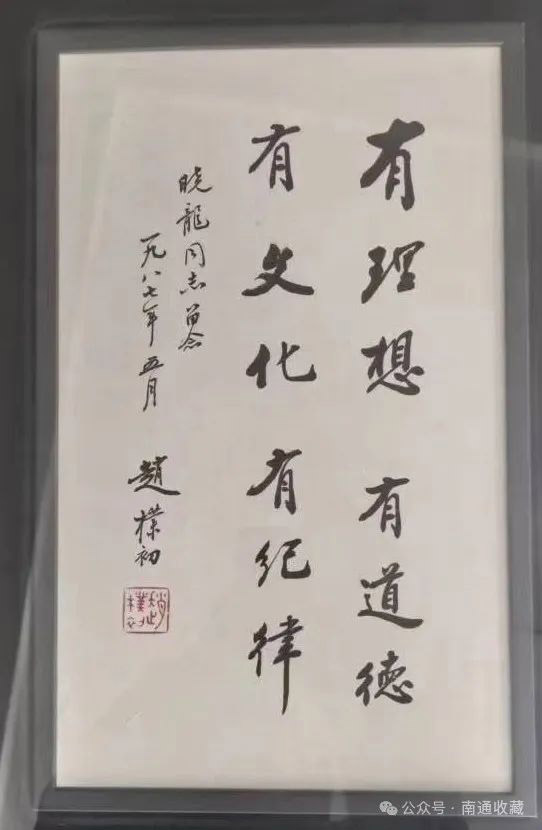 有理想 有道德
有文化 有纪律
晓龍同志留念
一九八七年五月 趙樸初
趙樸初
公众号·南通收藏